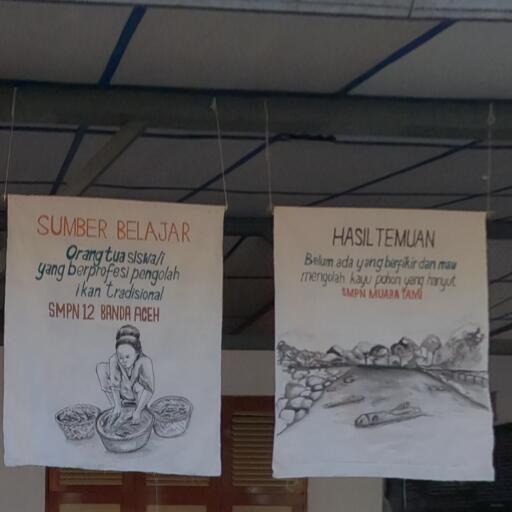 SUMBER BELAJAR
Orang tua siswa/i
yang berprofesi pengolah
ikan tradisional
SMPN 12 BANDA ACEH
HASIL TEMUAN
Belum ada yang berfikir dan mau
mengolah kayu pohon yang hanyut
SMPN MUARA TAMI